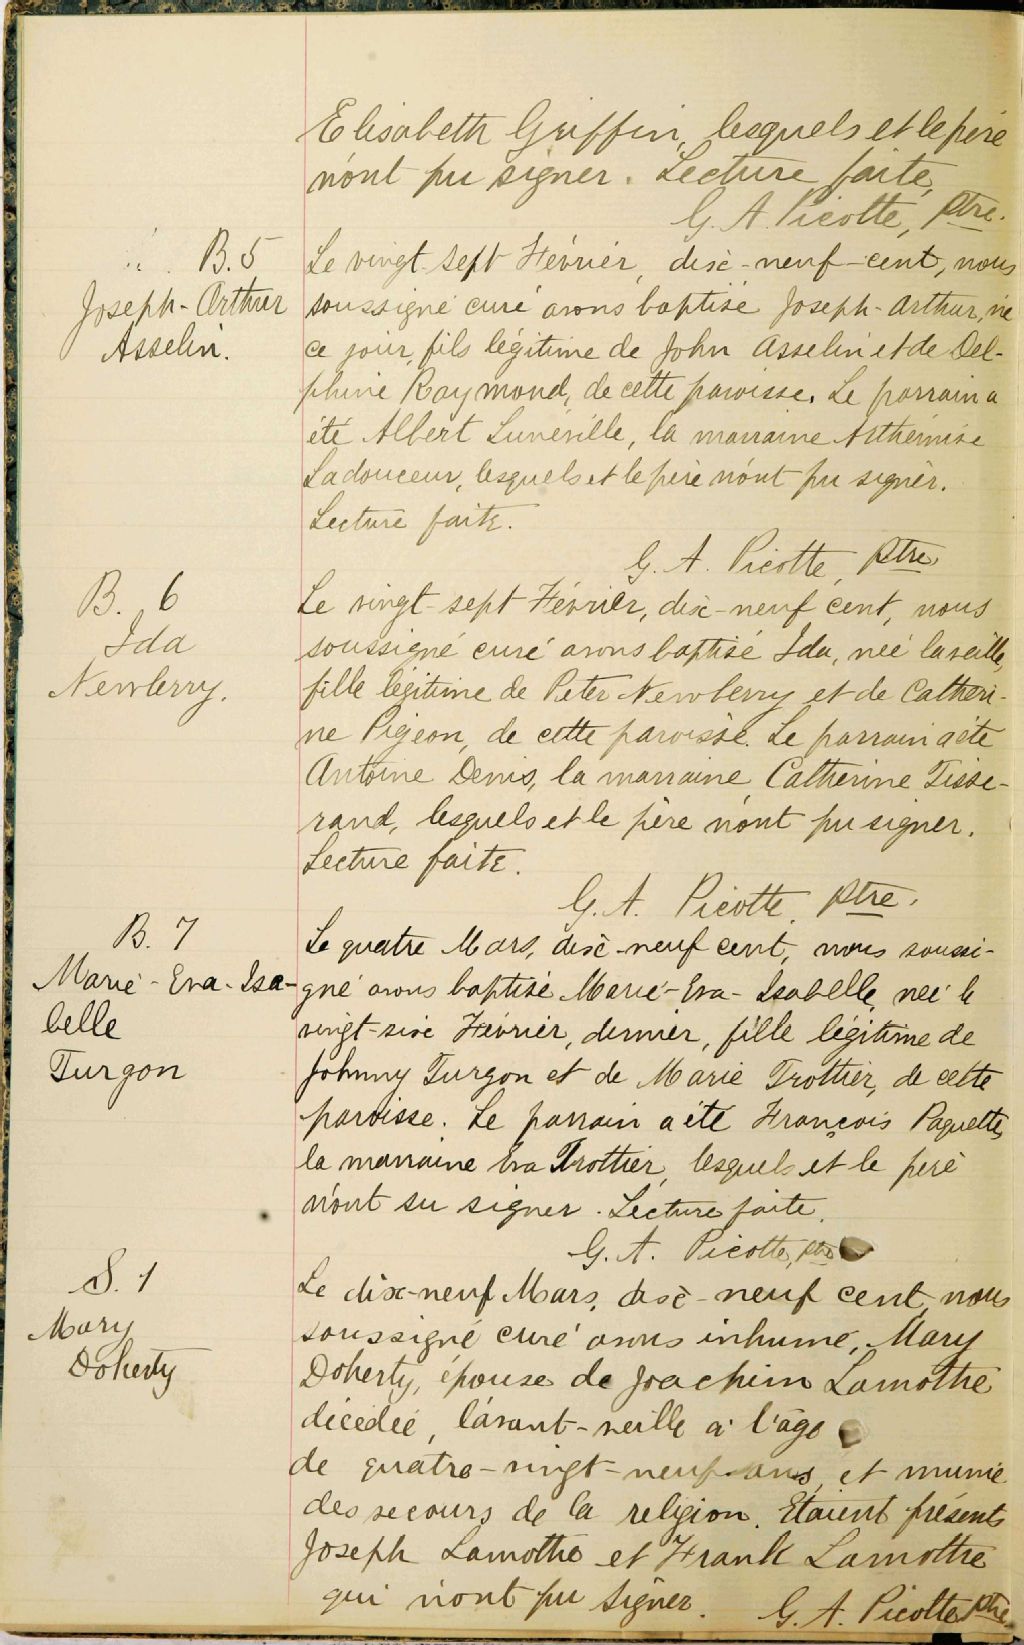 Elisabeth Griffin, lesquels et le père
n'ont pu signer. Lecture faite,
G. A. Picotte, Ptre.
B. 5
Joseph-Arthur
Asselin.
Le vingt-sept Février, dix-neuf-cent, nous
soussigné curé avons baptisé Joseph-Arthur, né
ce jour, fils légitime de John Asselin et de Del-
phine Raymond, de cette paroisse. Le parrain a
été Albert Lunéville, la marraine Arthémise
Ladouceur, lesquels et le père n'ont pu signer.
Lecture faite.
G. A. Picotte, Ptre
B. 6
Ida
Newberry.
Le vingt-sept Février, dix-neuf cent, nous
soussigné curé avons baptisé Ida, née la veille,
fille légitime de Peter Newberry et de Catheri-
ne Pigeon, de cette paroisse. Le parrain a été
Antoine Denis, la marraine Catherine Tisse-
rand, lesquels et le père n'ont pu signer.
Lecture faite.
G. A. Picotte, Ptre.
B. 7
Marie-Eva-Isa-
belle
Turgon
Le quatre Mars, dix-neuf cent, nous soussi-
gné avons baptisé Marie-Eva-Isabelle, née le
vingt-six Février, dernier, fille légitime de
Johnny Turgon et de Marie Trottier, de cette
paroisse. Le parrain a été François Paquette,
la marraine Eva Trottier, lesquels et le père
n'ont su signer. Lecture faite.
G. A. Picotte, ptre
S. 1
Mary
Doherty
Le dix-neuf Mars, dix-neuf cent, nous
soussigné curé avons inhumé, Mary
Doherty, épouse de Joachim Lamothe
décédée, l'avant-veille à l'âge
de quatre-vingt-neuf ans, et munie
des secours de la religion. Etaient présents
Joseph Lamothe et Frank Lamothe
qui n'ont pu signer.
G. A. Picotte Ptre